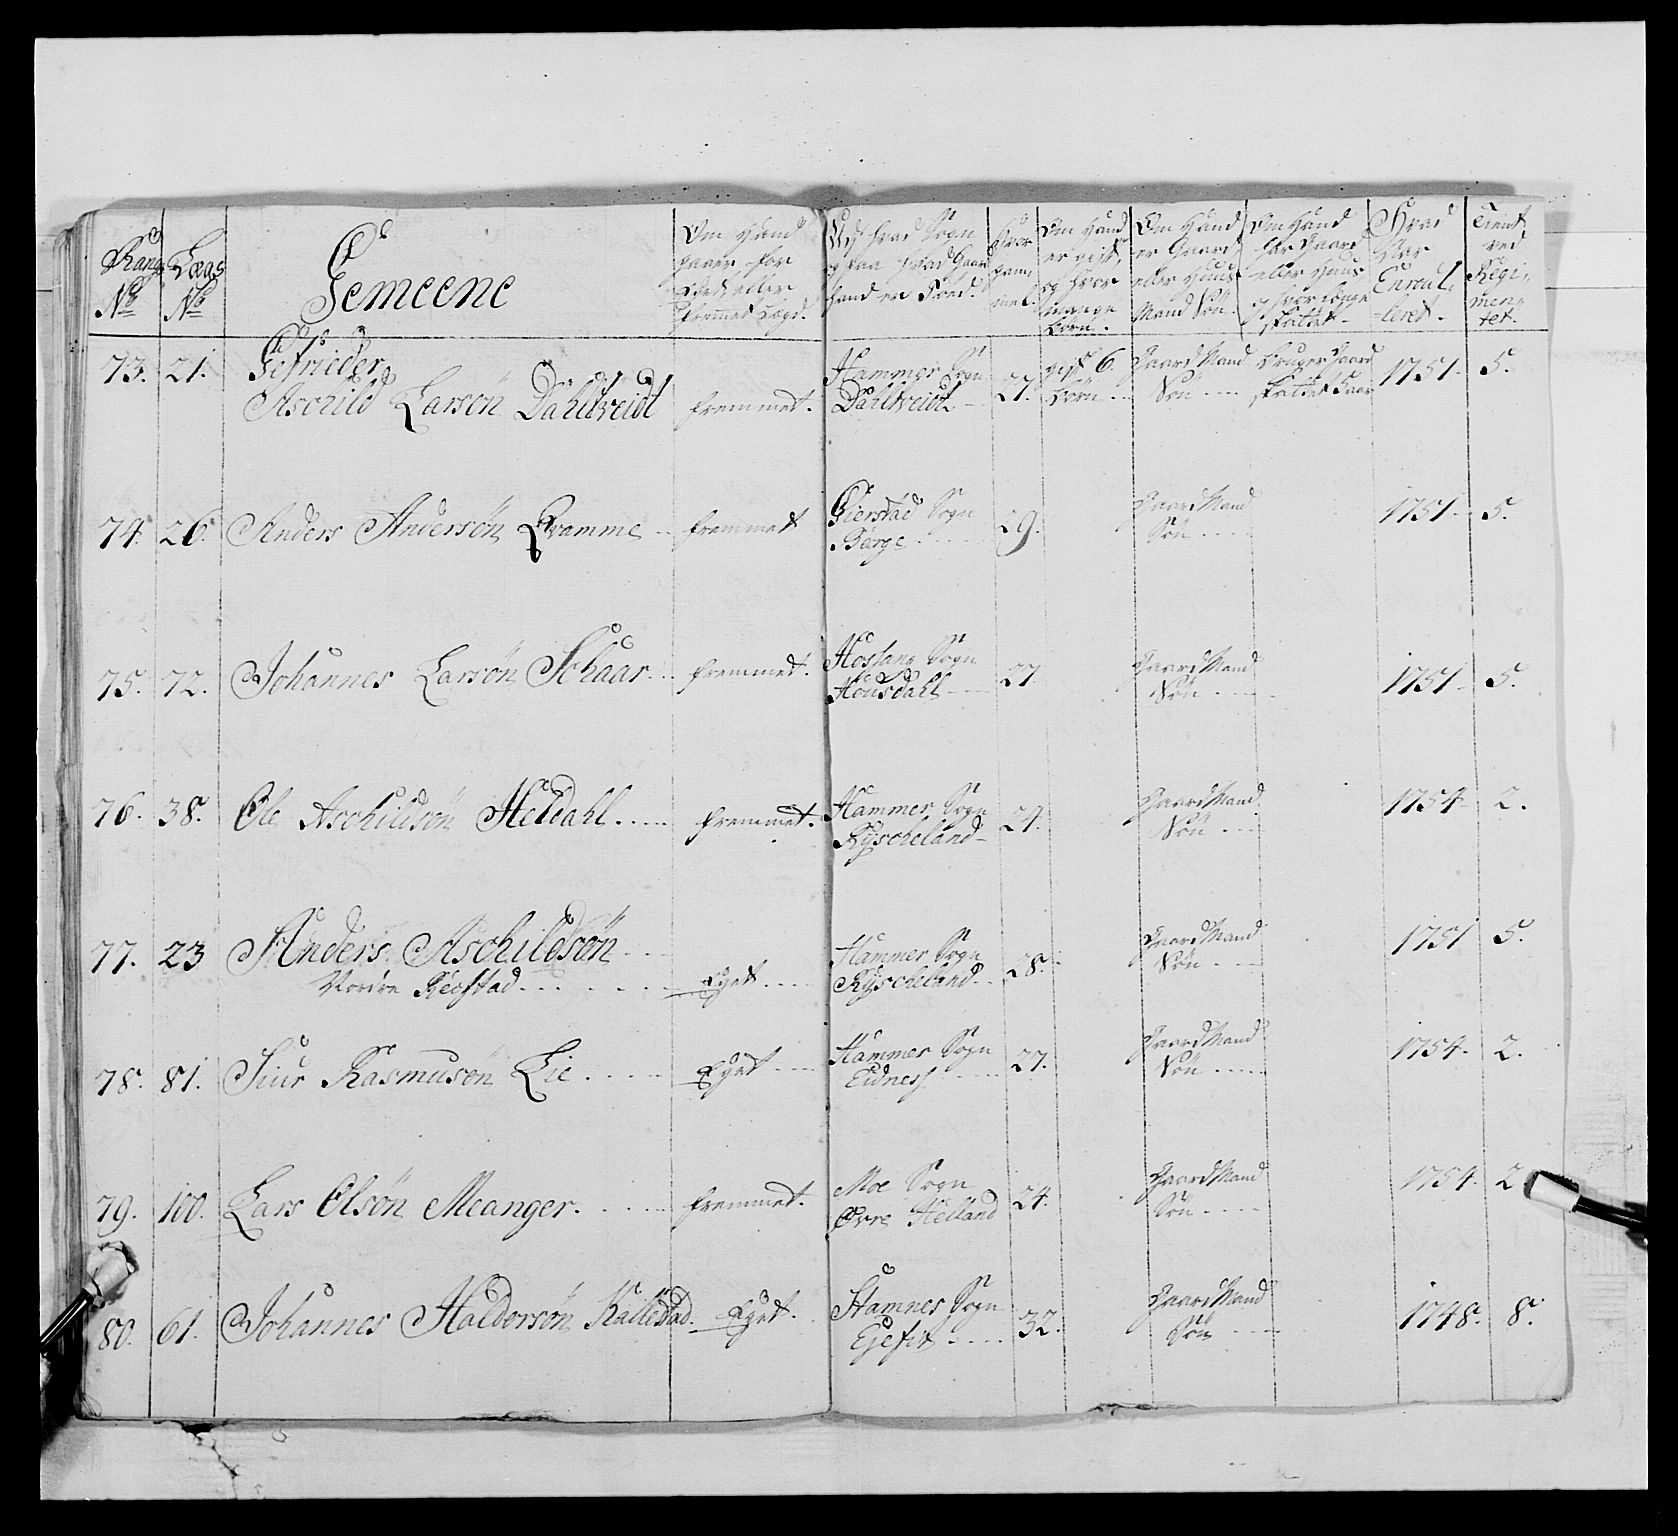 Rang No
Lægs No
Gemeene
Om Hand gaaer for Eget eller fremmet Lægd.
Ud hvad Sogn og paa hvad Gaard hand er Fød.
Hvor gam mel.
Om Hand er gift, og hvor mange Börn.
Om Hand er Gaard eller Huus Mand Sön.
Om Hand har Gaard eller Huus og hvor længe skattet
Hvad Aar Enroul leret.
Tient ved Regi menꞏ tet.
73. 21. Gefrieder
Aschild Larsön Dahltveidt fremmet. Hammer Sogn Dahltveidt 27. gift 6. börn Gaard Mand Sön bruger Gaard 1751. 5.
74. 26. Anders Andersön Qvamme fremmet Gierstad Sogn Berge 29. Gaard Mand Sön 1751. 5.
75. 72. Johannes Larsön Schaar fremmet. Hoslang Sogn Housdahl 27 Gaard Mand Sön 1751. 5.
76. 38. Ole Aschildsön Heldahl fremmet. Hammer Sogn Ryscheland 24. Gaard Mand Sön 1754. 2.
77. 23 Anders Aschildsön
Nordre Reostad Eget Hammer Sogn Ryscheland 28. Gaard Mand Sön 1751 5.
78. 81. Siur Rasmusön Lie Eget Hammer Sogn Eidness 27. Gaard Mand Sön 1754. 2.
79. 100. Lars Olsön Meanger. fremmet. Moe Sogn Øvre Heiland 24. Gaard Mand Sön 1754. 2
80. 61. Johannes Haldorsön Kallestad. Eget. Stamnes Sogn 32. Gaard Mand Sön 1748. 8.